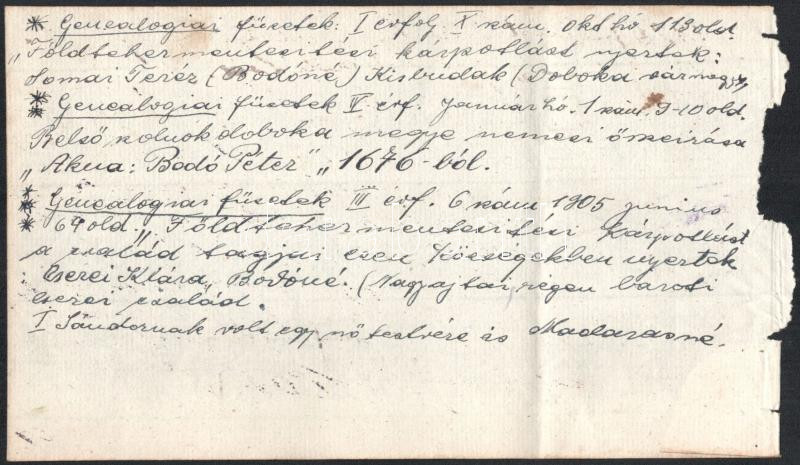 * Genealogiai füzetek: I évfoly X szám. okt hó 113 old.
„Földtehermentesitési kárpotlást nyertek:
Somai Teréz (Bodóné) Kisbudak (Doboka vármegye)
* Genealogiai füzetek V. évf. Január hó. 1 szám. 9-10 old.
* Belső szolnok doboka megye nemesi összeirása
„Akna: Bodó Peter" „1676-ból.
* Genealogiai füzetek III évf. 6 szám 1905 junius
* 64 old. „Földtehermentesitési Kárpotlást
a család tagjai ezen községekben nyertek
: Cserei Klára„ Bodóné. (Nagyajtai régen baroti
cserei család.
I Sándornak volt egy nő testvére is Madarasné.